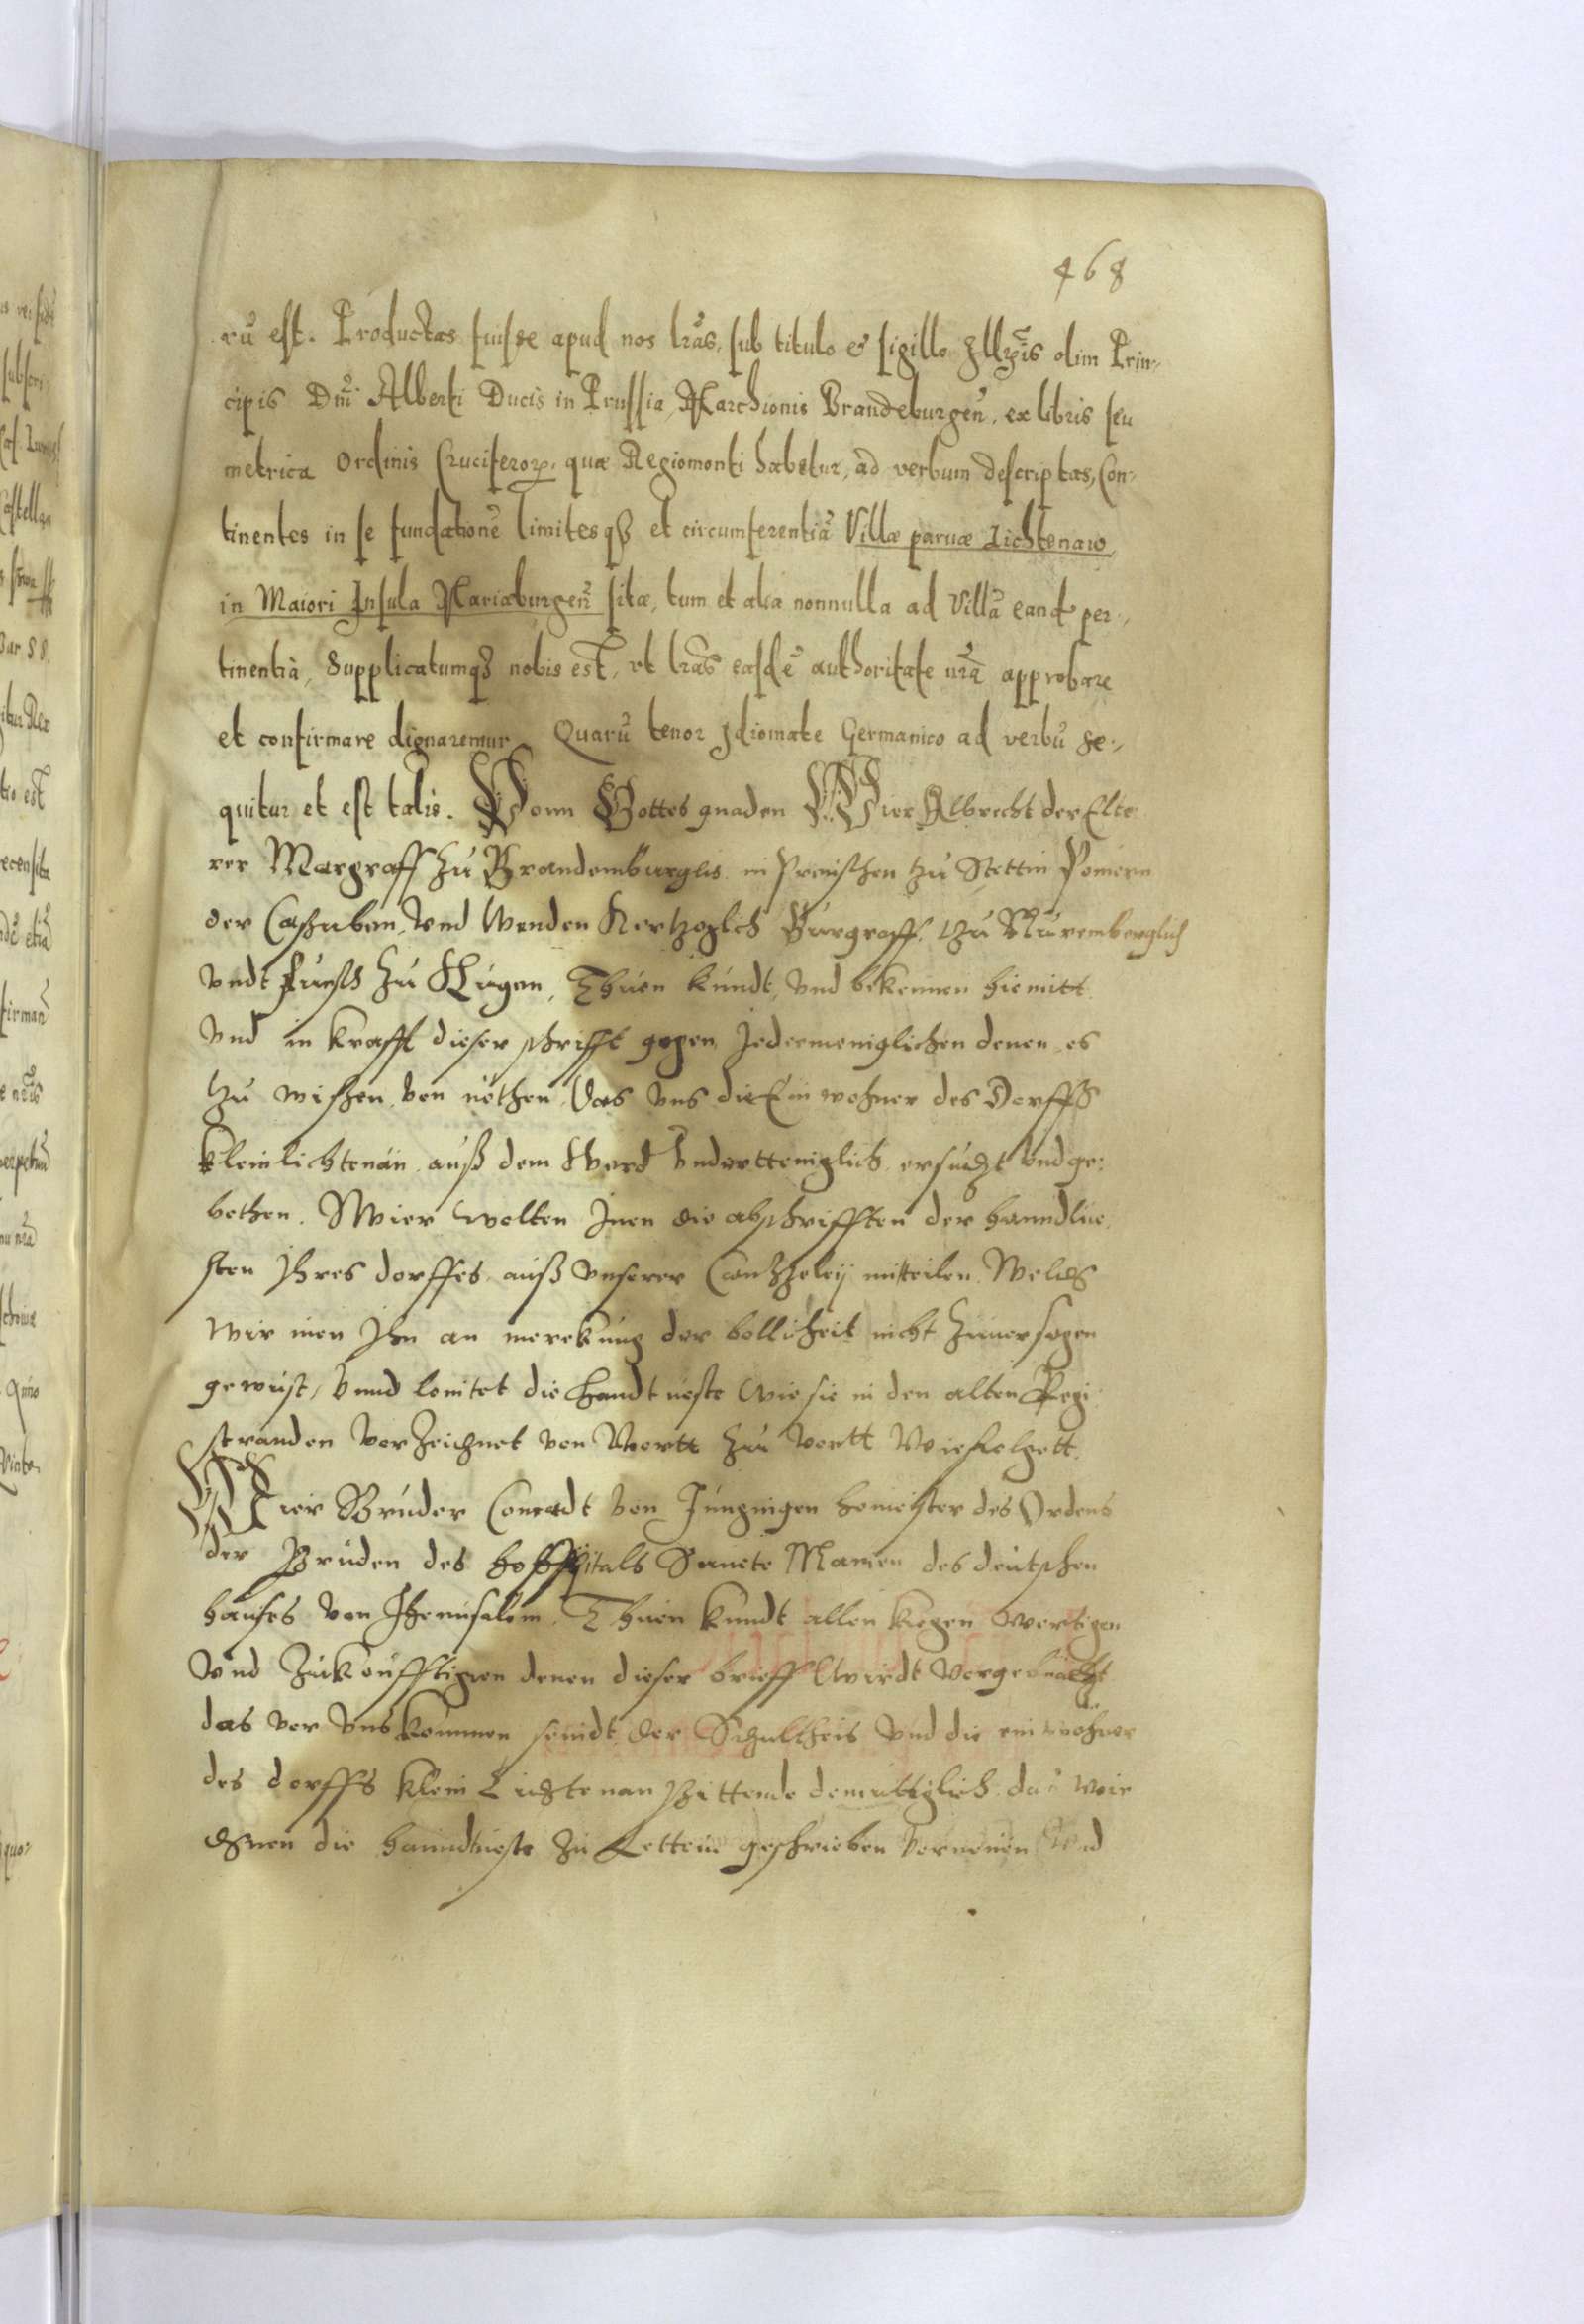 468
rũ est. Productas fuisse apud nos lr̃as, sub titulo et sigillo Jllr̃is olim Prin-
cipis Dñi Alberti Ducis in Prussia, Marchionis Brandeburgeñ. ex libris seu
metrica Ordinis Cruciferoꝝ. quæ Regiomonti habetur, ad verbum descriptas, Con-
tinentes in se fundationẽ limitesqꝫ et circumferentiã Villæ paruæ Lichtenaw
in Maiori Insula Mariæburgeñ sitæ, tum et alia nonnulla ad Villã eand per-
tinentia, Supplicatumqꝫ nobis est, vt lr̃as easdẽ authoritate nr̃a approbare
et confirmare dignaremur. Quarũ tenor Jdiomate Germanico ad verbũ se-
quitur et est talis. Vonn Gottes gnaden Wier Albrecht der Elte
rer Margraff zu Brandemburglis in Preüschen zu Stettin Pomern
der Cassuben, Vnd Wenden Hertzoglich Burgraff. zu Nuremberglich
Vndt Fürst zu Rügen, Thuen kundt, Vnd bekennen hiemitt
Vnd in krafft dieser schrifft gegen Jedermeniglichen denen es
Zu wissen von nöthen, Das Vns die Einwohner des Dorffs
Klein lichtenau auß dem Werd Vnderttenigliсh ersucht Vnd ge:
bethen. Wier wolten Jnen die abschrifften der handtue
sten Jhres dorffes auß Vnserer Cantzeleij mitteilen Welchs
Wir inen Jhn an merckung der bellicheit nicht Zuuersagen
gewust, Vnnd loutet die Handtueste Wie sie in den alten Regi
stranden Vorzeichnet von Wortt zu Wortt Wie folgett.
Wier Bruder Conradt Von Jungingen homeister des Ordens
der Brüder des hoßpitals Sancte Marien des deutschen
hauses Von Jherusalem. Thuen kundt allen kegenwertigen
Vnd Zukoufftigen denen dieser brieff Wirdt Vorgebracht
das Vor Vns kommen seindt der Schultheis Vnd die einwohner
des dorffs Klein Lichtenau Bittende demuttiglich das Wir
Ehnen die handtueste Zu Letteiu geschrieben Vorneuen Vnd